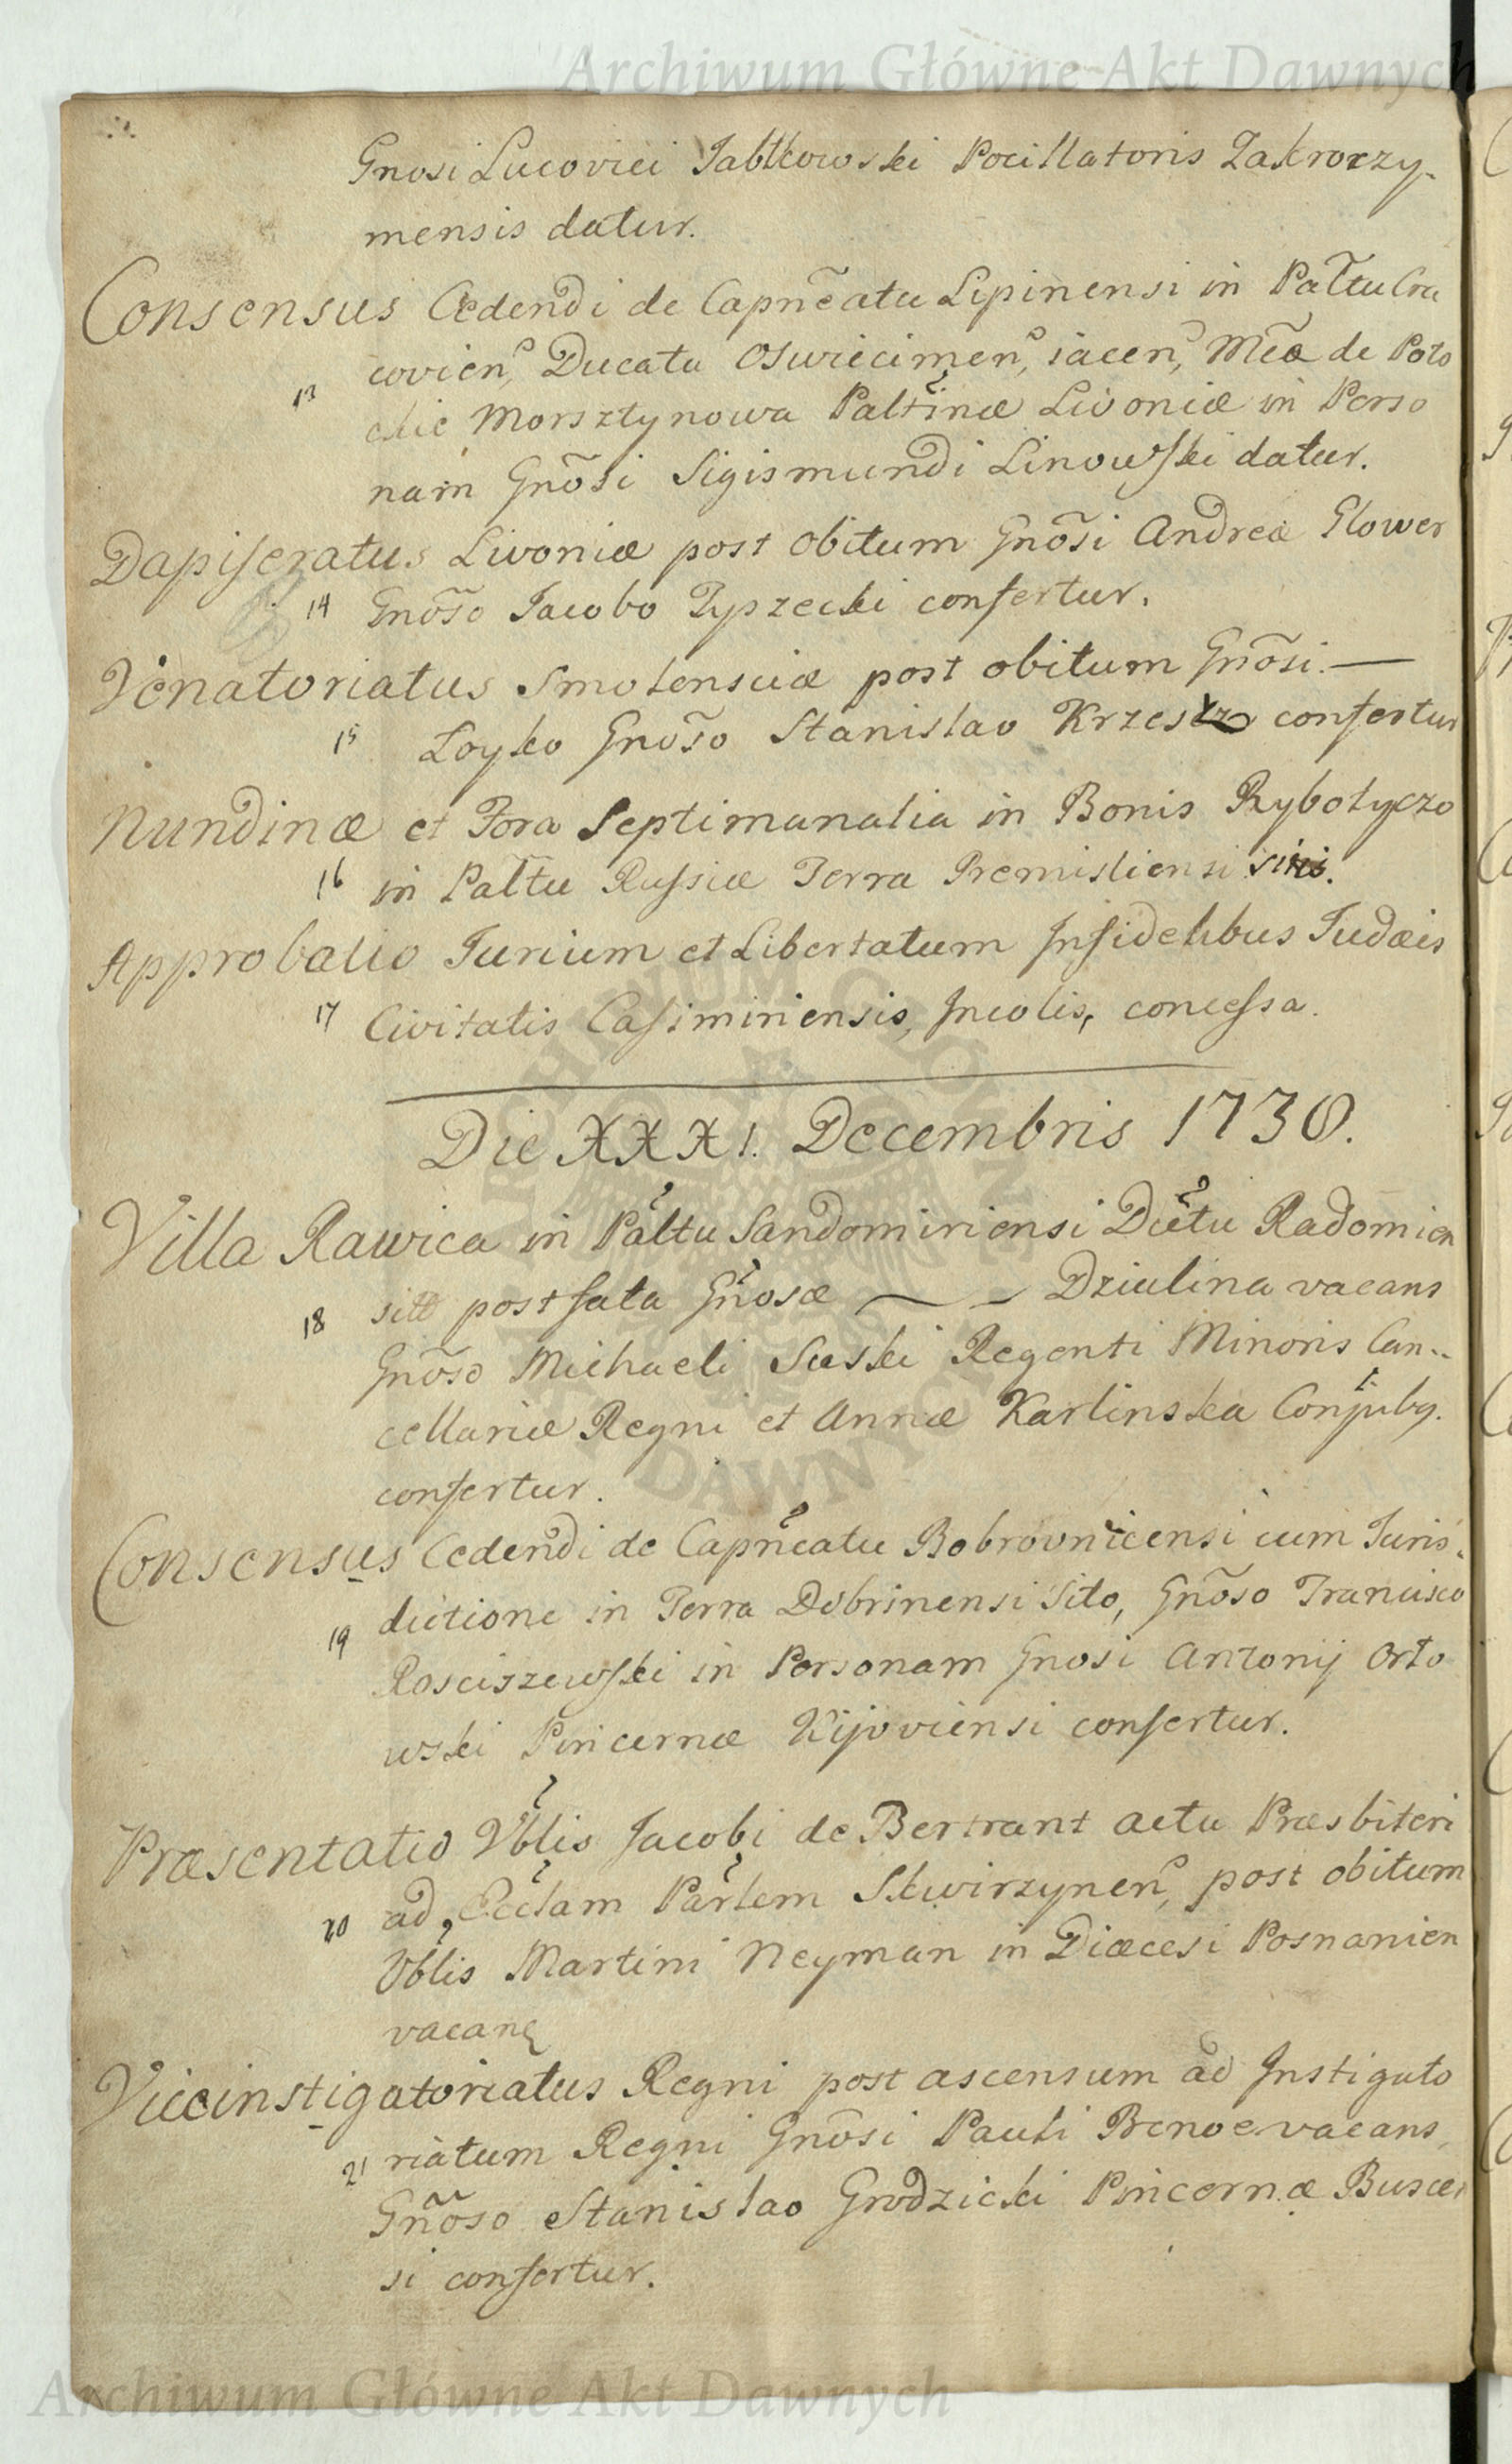 Archiwum Główne Akt Dawnych
Gnosi Lucovici Jabłkowski Pocillatoris Zakroczy-
mensis datur.
Consensus Cedendi de Capñeatu Lipinensi in Palŧu Cra
covien, Ducatu Oswiecimen, iacen, Mca de Poto
13
ckie Morsztynowa Paltinæ Livoniæ in Perso
nam Gnõsi Sigismundi Linowski datur.
Dapiferatus Livoniæ post obitum Gnõsi Andreæ Glower
14 Gnõso Jacobo Pyszecki confertur.
Venatoriatus Smolensciæ post obitum Gnõsi. —
15 Łoyko Gnõso Stanislao confertur
Nundinæ et Fora Septimanalia in Bonis Rybotycze
16 in Paltu Russiæ Terra Premisliensi sitis.
Approbatio Jurium et Libertatum Infidelibus Judæis
17 Civitatis Casimiriensis, Incolis, concessa.
Die XXXI. Decembris 1730.
Villa Rawica in Paltu Sandomiriensi Dictu Radomien
18 sita post fata Gnosæ — — Dziulina vacans
Gnõso Michaeli Suski Regenti Minoris Can-
cellariæ Regni et Annæ Karlinska Conjubg.
confertur.
Consensus Cedendi de Capñeatu Bobrovnicensi cum Juris-
19 dictione in Terra Dobrinensi Sito, Gnõso Francisco
Rosciszewski in Personam Gnosi Antonij Orło
wski Pincernæ Kijoviensi confertur.
Præsentatio Vblis Jacobi de Bertrant actu Præsbiteri
20 ad Eccłam Parlem Skwirzynen, post obitum
Vblis Martini Neyman in Diæcesi Posnanien
vacanę
Viceinstigatoriatus Regni post ascensum ad Instigato
21 riatum Regni Gnõsi Pauli Benoe vacans
Gnõso Stanislao Grodzicki Pincernæ Buscen
si confertur.
Archiwum Główne Akt Dawnych